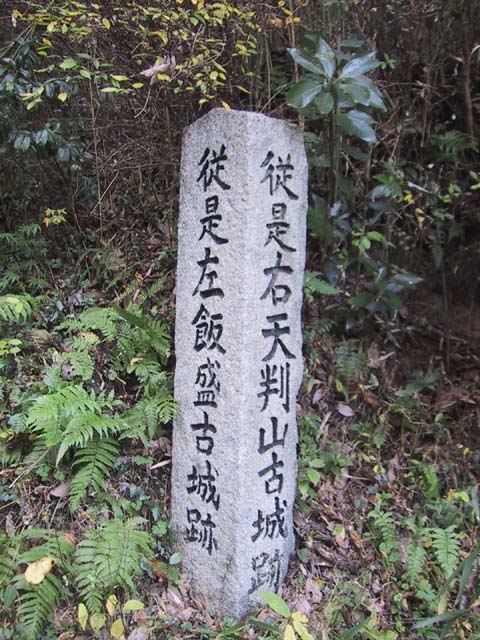 従是右天判山古城跡
従是左飯盛古城跡